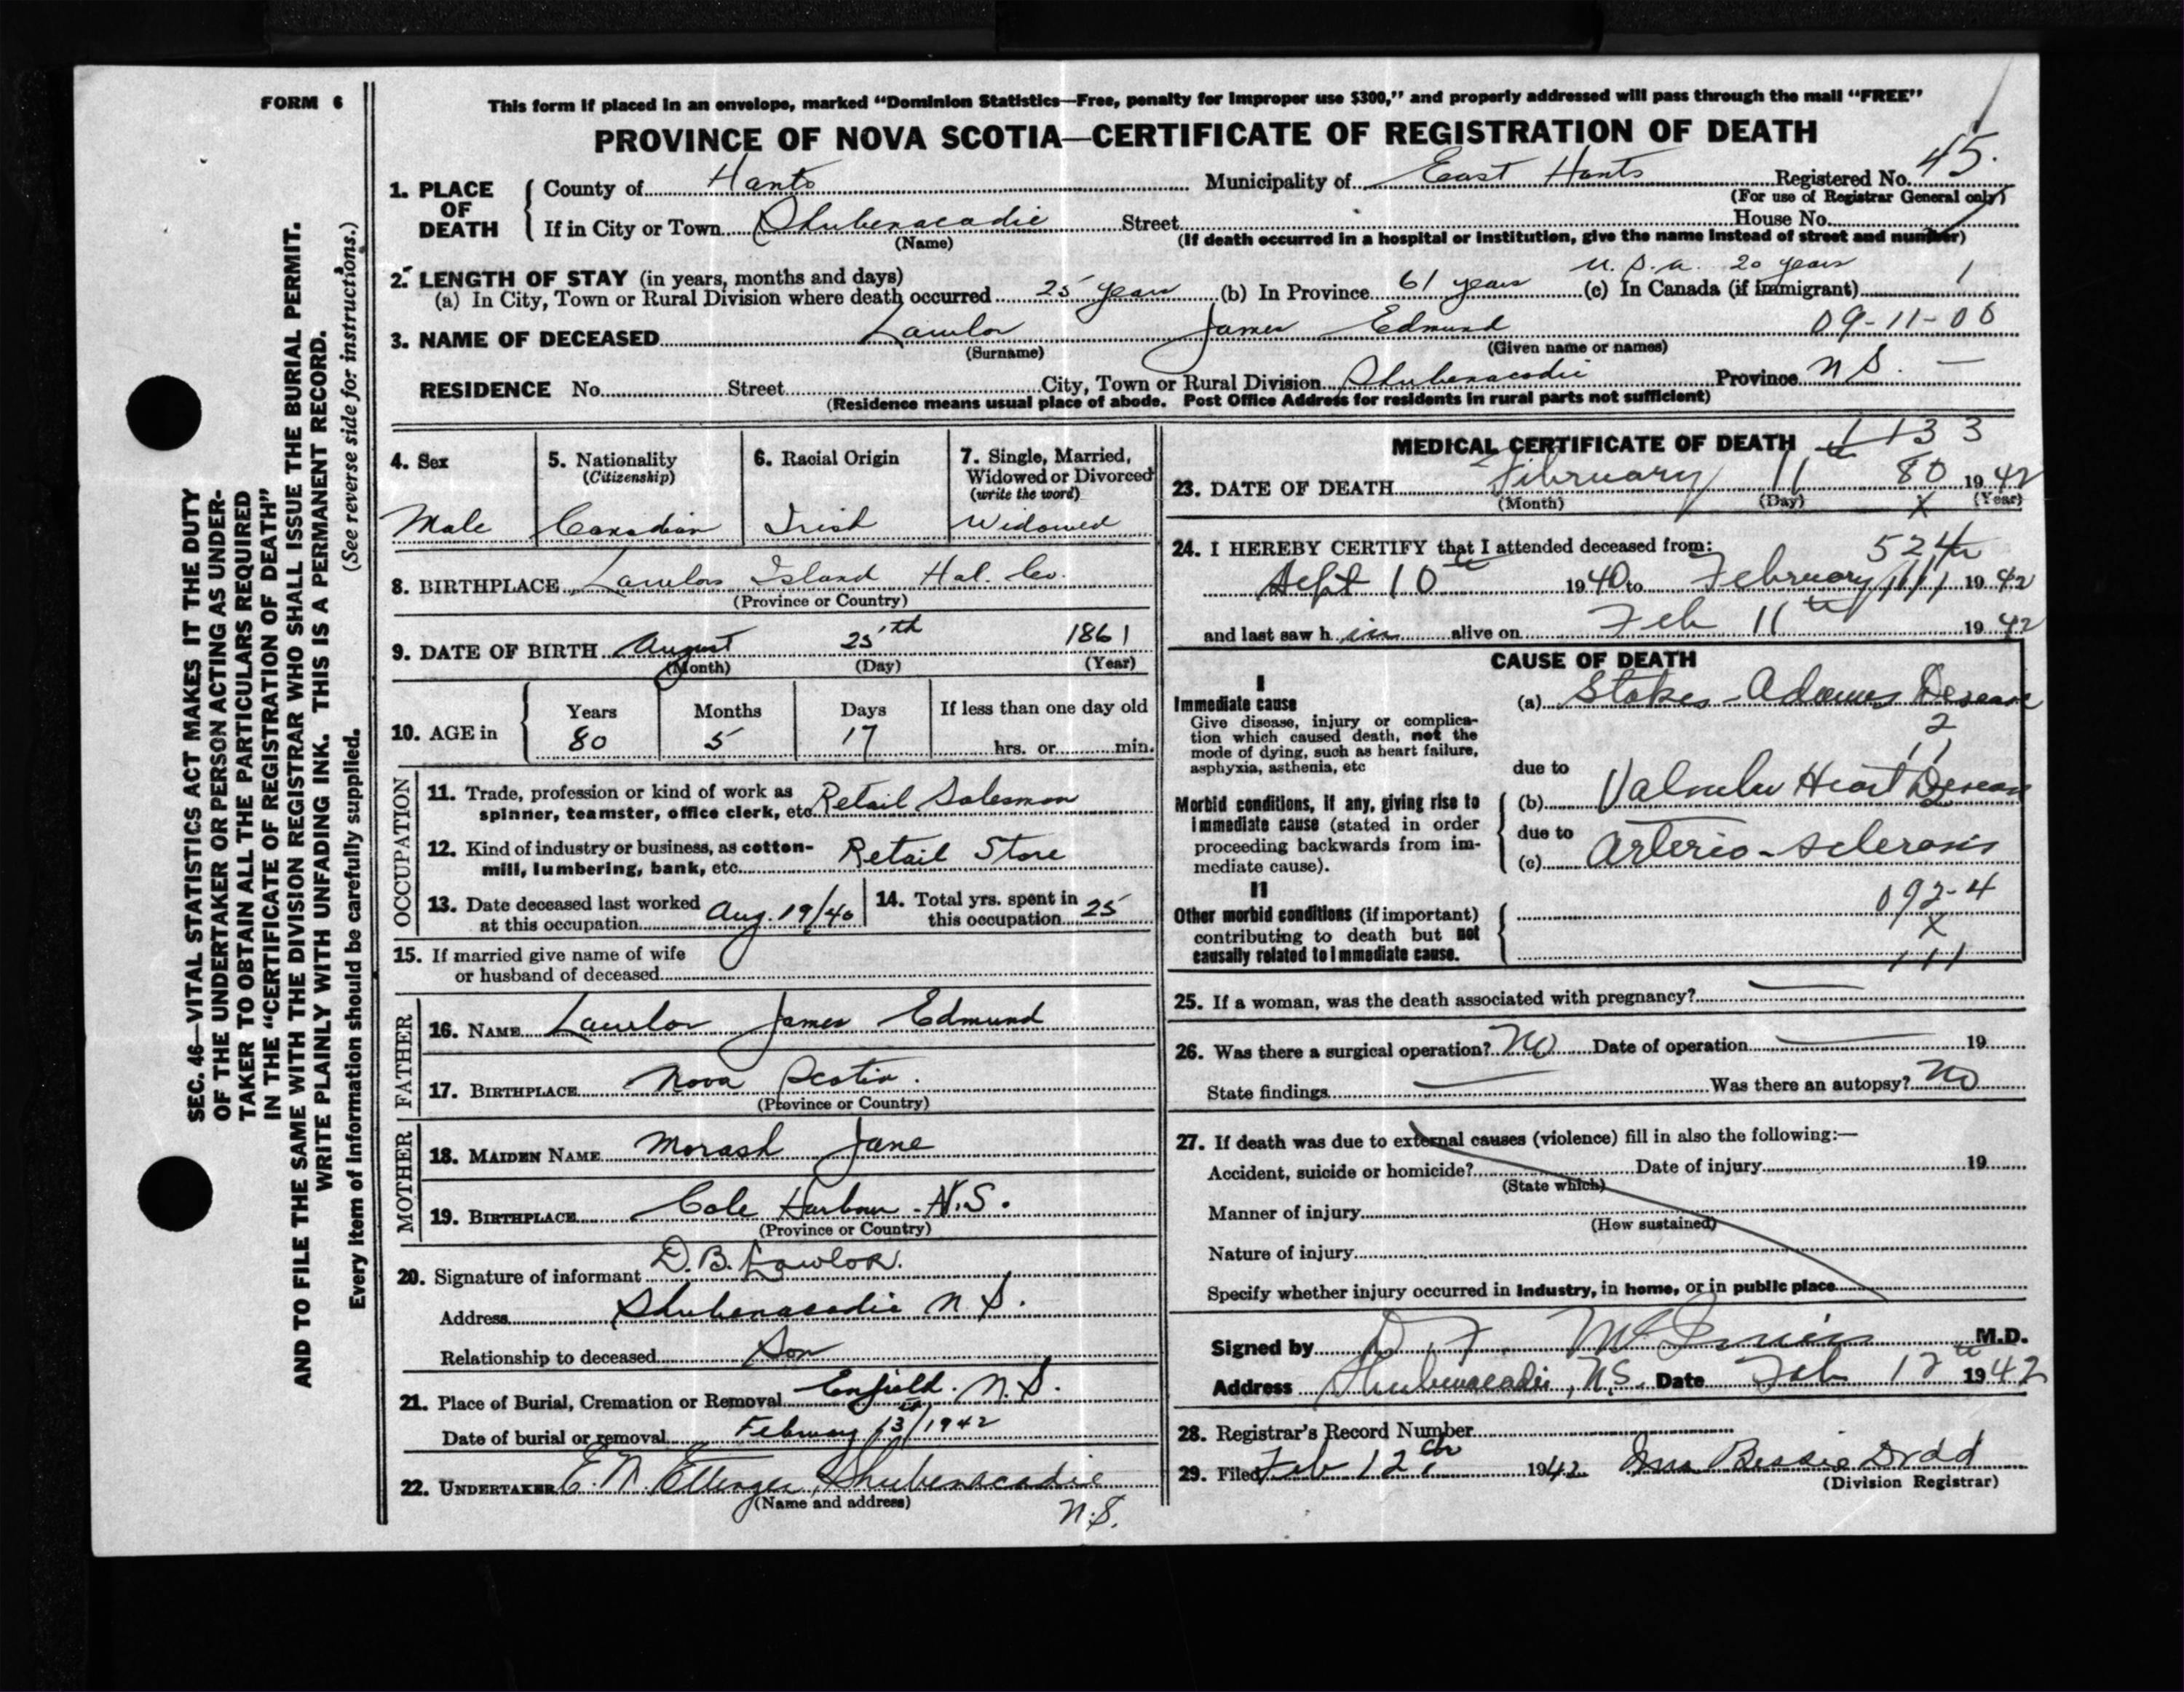 FORM 6
This form if placed in an envelope, marked “Dominion Statistics—Free, penalty for improper use $300,” and properly addressed will pass through the mail “FREE”
PROVINCE OF NOVA SCOTIA—CERTIFICATE OF REGISTRATION OF DEATH
SEC. 46—VITAL STATISTICS ACT MAKES IT THE DUTY
OF THE UNDERTAKER OR PERSON ACTING AS UNDER-
TAKER TO OBTAIN ALL THE PARTICULARS REQUIRED
IN THE “CERTIFICATE OF REGISTRATION OF DEATH”
AND TO FILE THE SAME WITH THE DIVISION REGISTRAR WHO SHALL ISSUE THE BURIAL PERMIT.
WRITE PLAINLY WITH UNFADING INK. THIS IS A PERMANENT RECORD.
Every item of information should be carefully supplied. (See reverse side for instructions.)
1. PLACE OF DEATH
County of Hants Municipality of East Hants Registered No. 45.
(For use of Registrar General only)
If in City or Town Shubenacadie Street House No.
(Name) (If death occurred in a hospital or institution, give the name instead of street and number)
2. LENGTH OF STAY (in years, months and days) U.S.A. 20 years
(a) In City, Town or Rural Division where death occurred 25 years (b) In Province 61 years (c) In Canada (if immigrant) 1
3. NAME OF DECEASED Lawlor James Edmund 09-11-00
(Surname) (Given name or names)
RESIDENCE No. Street City, Town or Rural Division Shubenacadie Province N S. —
(Residence means usual place of abode. Post Office Address for residents in rural parts not sufficient)
4. Sex
Male
5. Nationality
(Citizenship)
Canadian
6. Racial Origin
Irish
7. Single, Married,
Widowed or Divorced
(write the word)
Widowed
8. BIRTHPLACE Lawlors Island Hal. Co.
(Province or Country)
9. DATE OF BIRTH August 25th 1861
(Month) (Day) (Year)
10. AGE in
Years Months Days If less than one day old
80 5 17 hrs. or min.
OCCUPATION
11. Trade, profession or kind of work as
spinner, teamster, office clerk, etc. Retail Salesman
12. Kind of industry or business, as cotton-
mill, lumbering, bank, etc. Retail Store
13. Date deceased last worked
at this occupation Aug. 19/40
14. Total yrs. spent in
this occupation 25
15. If married give name of wife
or husband of deceased
FATHER
16. NAME Lawlor James Edmund
17. BIRTHPLACE Nova Scotia.
(Province or Country)
MOTHER
18. MAIDEN NAME Morash Jane
19. BIRTHPLACE Cole Harbour - N.S.
(Province or Country)
20. Signature of informant D. B. Lawlor.
Address Shubenacadie N. S.
Relationship to deceased Son
21. Place of Burial, Cremation or Removal Enfield. N. S.
Date of burial or removal February 13/1942
22. UNDERTAKER E. N. Ettinger, Shubenacadie
(Name and address) N.S.
MEDICAL CERTIFICATE OF DEATH 1133
23. DATE OF DEATH February 11 80 1942
(Month) (Day) X (Year)
24. I HEREBY CERTIFY that I attended deceased from: 524
Sept 10 1940 to February 11 1942
and last saw him alive on Feb 11th 1942
CAUSE OF DEATH
I
Immediate cause
Give disease, injury or complica-
tion which caused death, not the
mode of dying, such as heart failure,
asphyxia, asthenia, etc
(a) Stokes-Adams Disease
2
11
due to
Morbid conditions, if any, giving rise to
immediate cause (stated in order
proceeding backwards from im-
mediate cause).
(b) Valvular Heart Disease
due to
(c) Arterio-sclerosis
II
Other morbid conditions (if important)
contributing to death but not
causally related to immediate cause.
092-4
X
111
25. If a woman, was the death associated with pregnancy? —
26. Was there a surgical operation? No Date of operation — 19
State findings — Was there an autopsy? No
27. If death was due to external causes (violence) fill in also the following:—
Accident, suicide or homicide? Date of injury 19
(State which)
Manner of injury
(How sustained)
Nature of injury
Specify whether injury occurred in industry, in home, or in public place
Signed by D. F. McInnis M.D.
Address Shubenacadie, N.S. Date Feb 12th 1942
28. Registrar's Record Number
29. Filed Feb 12th 1942 Mrs Bessie Dodd
(Division Registrar)